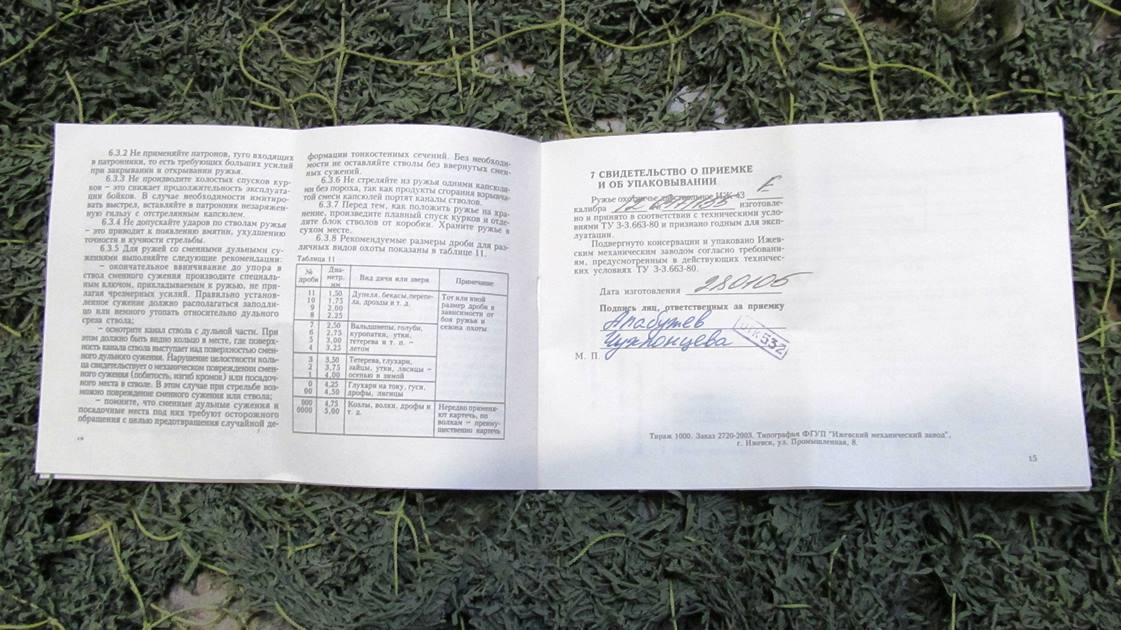 6.3.2 Не применяйте патронов, туго входящих
в патронники, то есть требующих больших усилий
при закрывании и открывании ружья.
6.3.3 Не производите холостых спусков кур-
ков – это снижает продолжительность эксплуата-
ции бойков. В случае необходимости имитиро-
вать выстрел, вставляйте в патронник незаряжен-
ную гильзу с отстрелянным капсюлем.
6.3.4 Не допускайте ударов по стволам ружья
– это приводит к появлению вмятин, ухудшению
точности и кучности стрельбы.
6.3.5 Для ружей со сменными дульными су-
жениями выполняйте следующие рекомендации:
– окончательное ввинчивание до упора в
ствол сменного сужения производите специаль-
ным ключом, прикладываемым к ружью, не при-
лагая чрезмерных усилий. Правильно установ-
ленное сужение должно располагаться заподли-
цо или немного утопать относительно дульного
среза ствола;
– осмотрите канал ствола с дульной части. При
этом должно быть видно кольцо в месте, где поверх-
ность канала ствола выступает над поверхностью смен-
ного дульного сужения. Нарушение целостности коль-
ца свидетельствует о механическом повреждении смен-
ного сужения (побитость, изгиб кромок) или посадоч-
ного места в стволе. В этом случае при стрельбе воз-
можно повреждение сменного сужения или ствола;
– помните, что сменные дульные сужения и
посадочные места под них требуют осторожного
обращения с целью предотвращения случайной де-
формации тонкостенных сечений. Без необходи-
мости не оставляйте стволы без ввернутых смен-
ных сужений.
6.3.6 Не стреляйте из ружья одними капсюля-
ми без пороха, так как продукты сгорания взрывча-
той смеси капсюлей портят каналы стволов.
6.3.7 Перед тем, как положить ружье на хра-
нение, произведите плавный спуск курков и отде-
лите блок стволов от коробки. Храните ружье в
сухом месте.
6.3.8 Рекомендуемые размеры дроби для раз-
личных видов охоты показаны в таблице 11.
Таблица 11
№ дроби Диа-метр, мм Вид дичи или зверя Примечание
11 1,50 Дупеля, бекасы, перепе- Тот или иной
10 1,75 ла, дрозды и т. д. размер дроби в
9 2,00 зависимости от
8 2,25 боя ружья и
7 2,50 Вальдшнепы, голуби, сезона охоты
6 2,75 куропатки, утки,
5 3,00 тетерева и т. п. –
4 3,25 летом
3 3,50 Тетерева, глухари,
2 3,75 зайцы, утки, лисицы –
1 4,00 осенью и зимой
0 4,25 Глухари на току, гуси,
00 4,50 дрофы, лисицы
000 4,75 Козлы, волки, дрофы и Нередко применя-
0000 5,00 т. д. ют картечь, по
волкам – преиму-
щественно картечь
7 СВИДЕТЕЛЬСТВО О ПРИЕМКЕ
И ОБ УПАКОВЫВАНИИ
Ружье охотничье двуствольное ИЖ-43 Е
калибра 12 изготовле-
но и принято в соответствии с техническими усло-
виями ТУ 3-3.663-80 и признано годным для эксп-
луатации.
Подвергнуто консервации и упаковано Ижев-
ским механическим заводом согласно требовани-
ям, предусмотренным в действующих техничес-
ких условиях ТУ 3-3.663-80.
Дата изготовления 280106
Подпись лиц, ответственных за приемку
М. П.
532
Тираж 1000. Заказ 2720-2003. Типография ФГУП "Ижевский механический завод",
г. Ижевск, ул. Промышленная, 8.
15